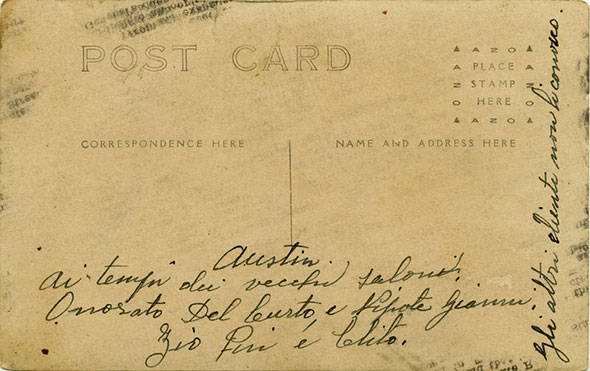 POST CARD
AZO
PLACE
STAMP
HERE
AZO
CORRESPONDENCE HERE
NAME AND ADDRESS HERE
Austin.
ai tempi dei vecchi saloni
Onorato Del Curto, e Nipote Gianni
Zio Pin è Clito.
Gli altri clienti non li conosco.